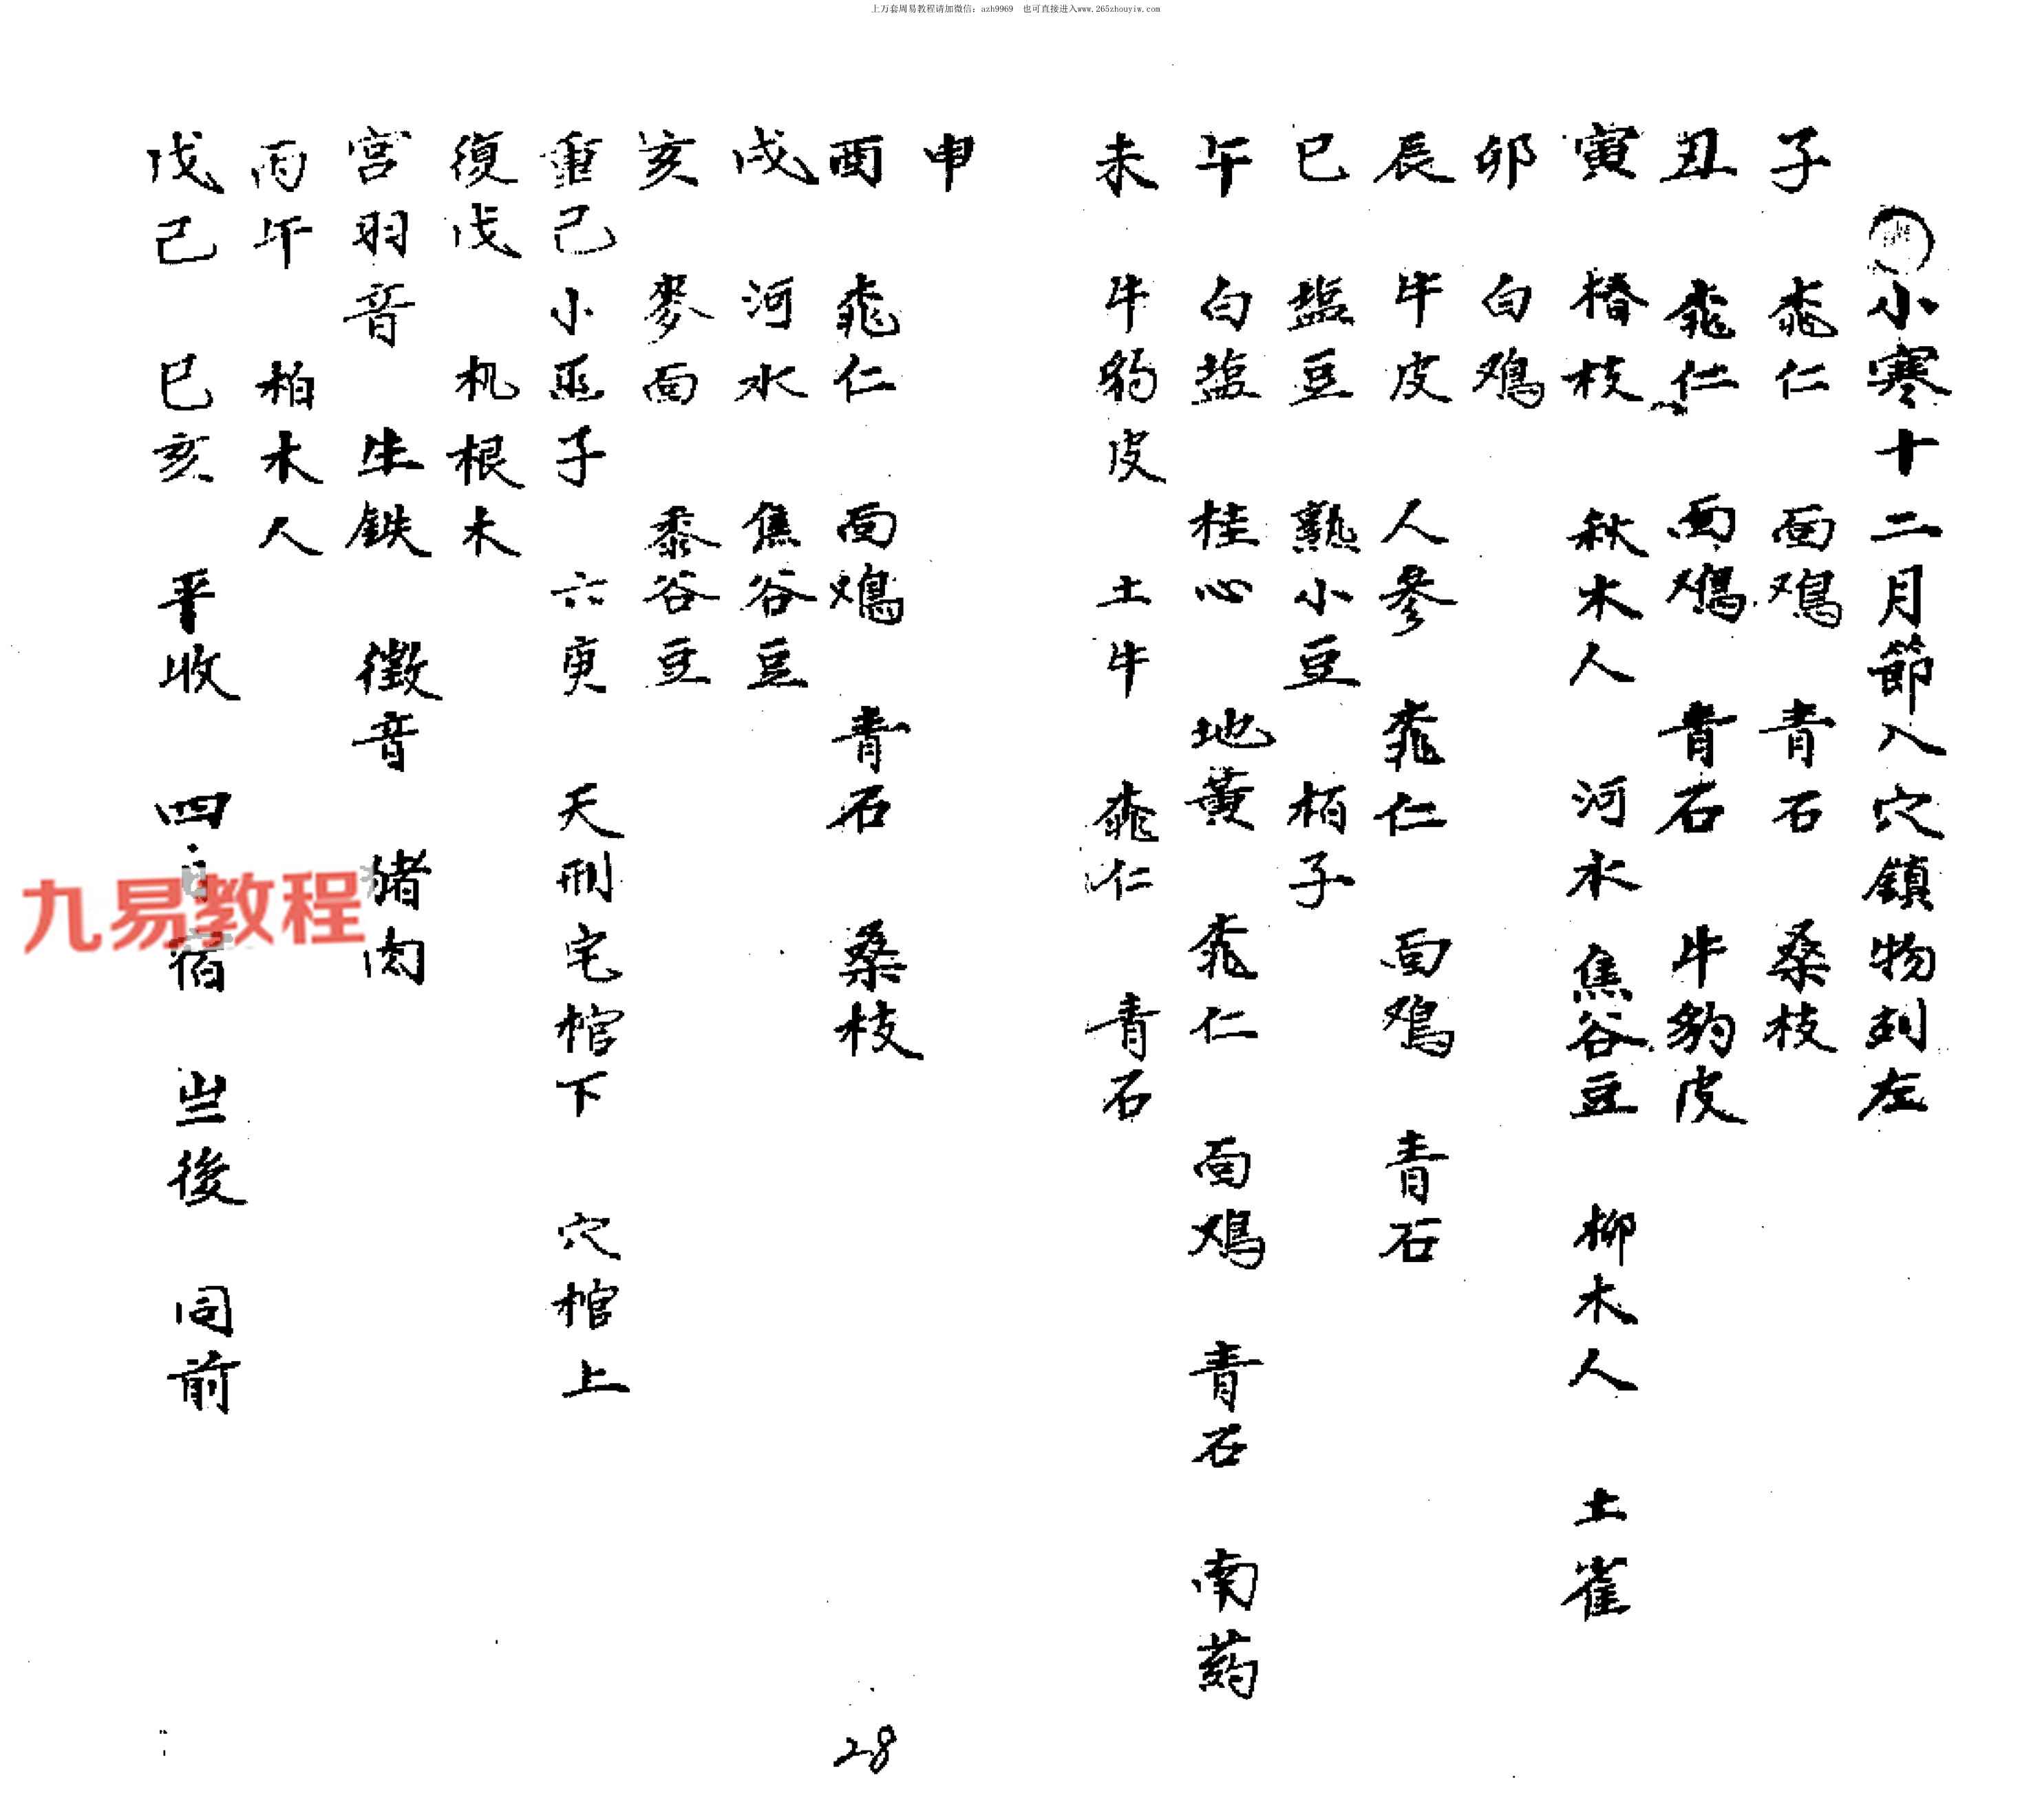 上万套周易教程请加微信：azh9969 也可直接进入www.265zhouyiw.com
小寒十二月節入穴鎮物列左
子 桃仁 面鸡 青石 桑枝
丑 桃仁 面鸡 青石 牛豹皮
寅 椿枝 秋木人 河水 焦谷豆 柳木人 土雀
卯 白鸡
辰 牛皮 人參 桃仁 面鸡 青石
巳 盐豆 熟小豆 柏子
午 白盐 桂心 地黄 桃仁 面鸡 青石 南药
未 牛豹皮 土牛 桃仁 青石
申
酉 桃仁 面鸡 青石 桑枝
戌 河水 焦谷豆
亥 麥面 黍谷豆
重己小巫子 六庚 天刑宅棺下 穴棺上
復戊 机根木
宫羽音 生鉄 徵音 猪肉
丙午 柏木人
戊己 巳亥 平收 四 宿 出後 同前
九易教程
28